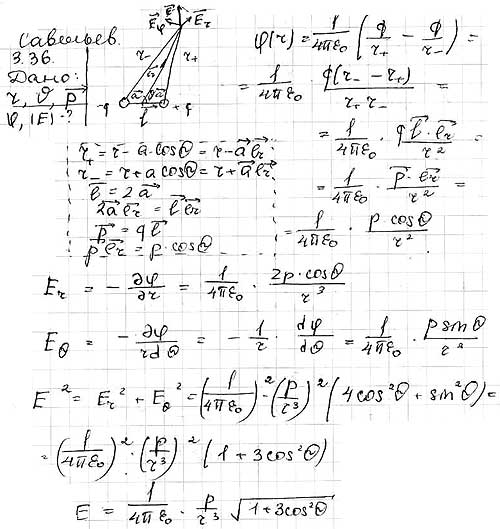 Савельев.
3.36.
Дано:
r, ϑ, p⃗
φ, |E| - ?
E⃗ E⃗φ E⃗r
r₋ r⃗ r₊
-q a⃗ ϑ a⃗ +q
l⃗
φ(r) = 1/4πε₀ (q/r₊ − q/r₋) =
= 1/4πε₀ · q(r₋ − r₊)/r₊r₋ =
= 1/4πε₀ · q l⃗ · e⃗r/r² =
= 1/4πε₀ · p⃗ · e⃗r/r² =
= 1/4πε₀ · p cosθ/r²
r₊ = r − a·cosθ = r − a⃗ e⃗r
r₋ = r + a cosθ = r + a⃗ e⃗r
l⃗ = 2a⃗
2a⃗ e⃗r = l⃗ e⃗r
p⃗ = q l⃗
p⃗ e⃗r = p · cosθ
Er = − ∂φ/∂r = 1/4πε₀ · 2p·cosθ/r³
Eθ = − ∂φ/r∂θ = − 1/r · dφ/dθ = 1/4πε₀ · p sinθ/r²
E² = Er² + Eθ² = (1/4πε₀)² · (p/r³)² (4cos²θ + sin²θ) =
= (1/4πε₀)² · (p/r³)² (1 + 3cos²θ)
E = 1/4πε₀ · p/r³ √(1 + 3cos²θ)